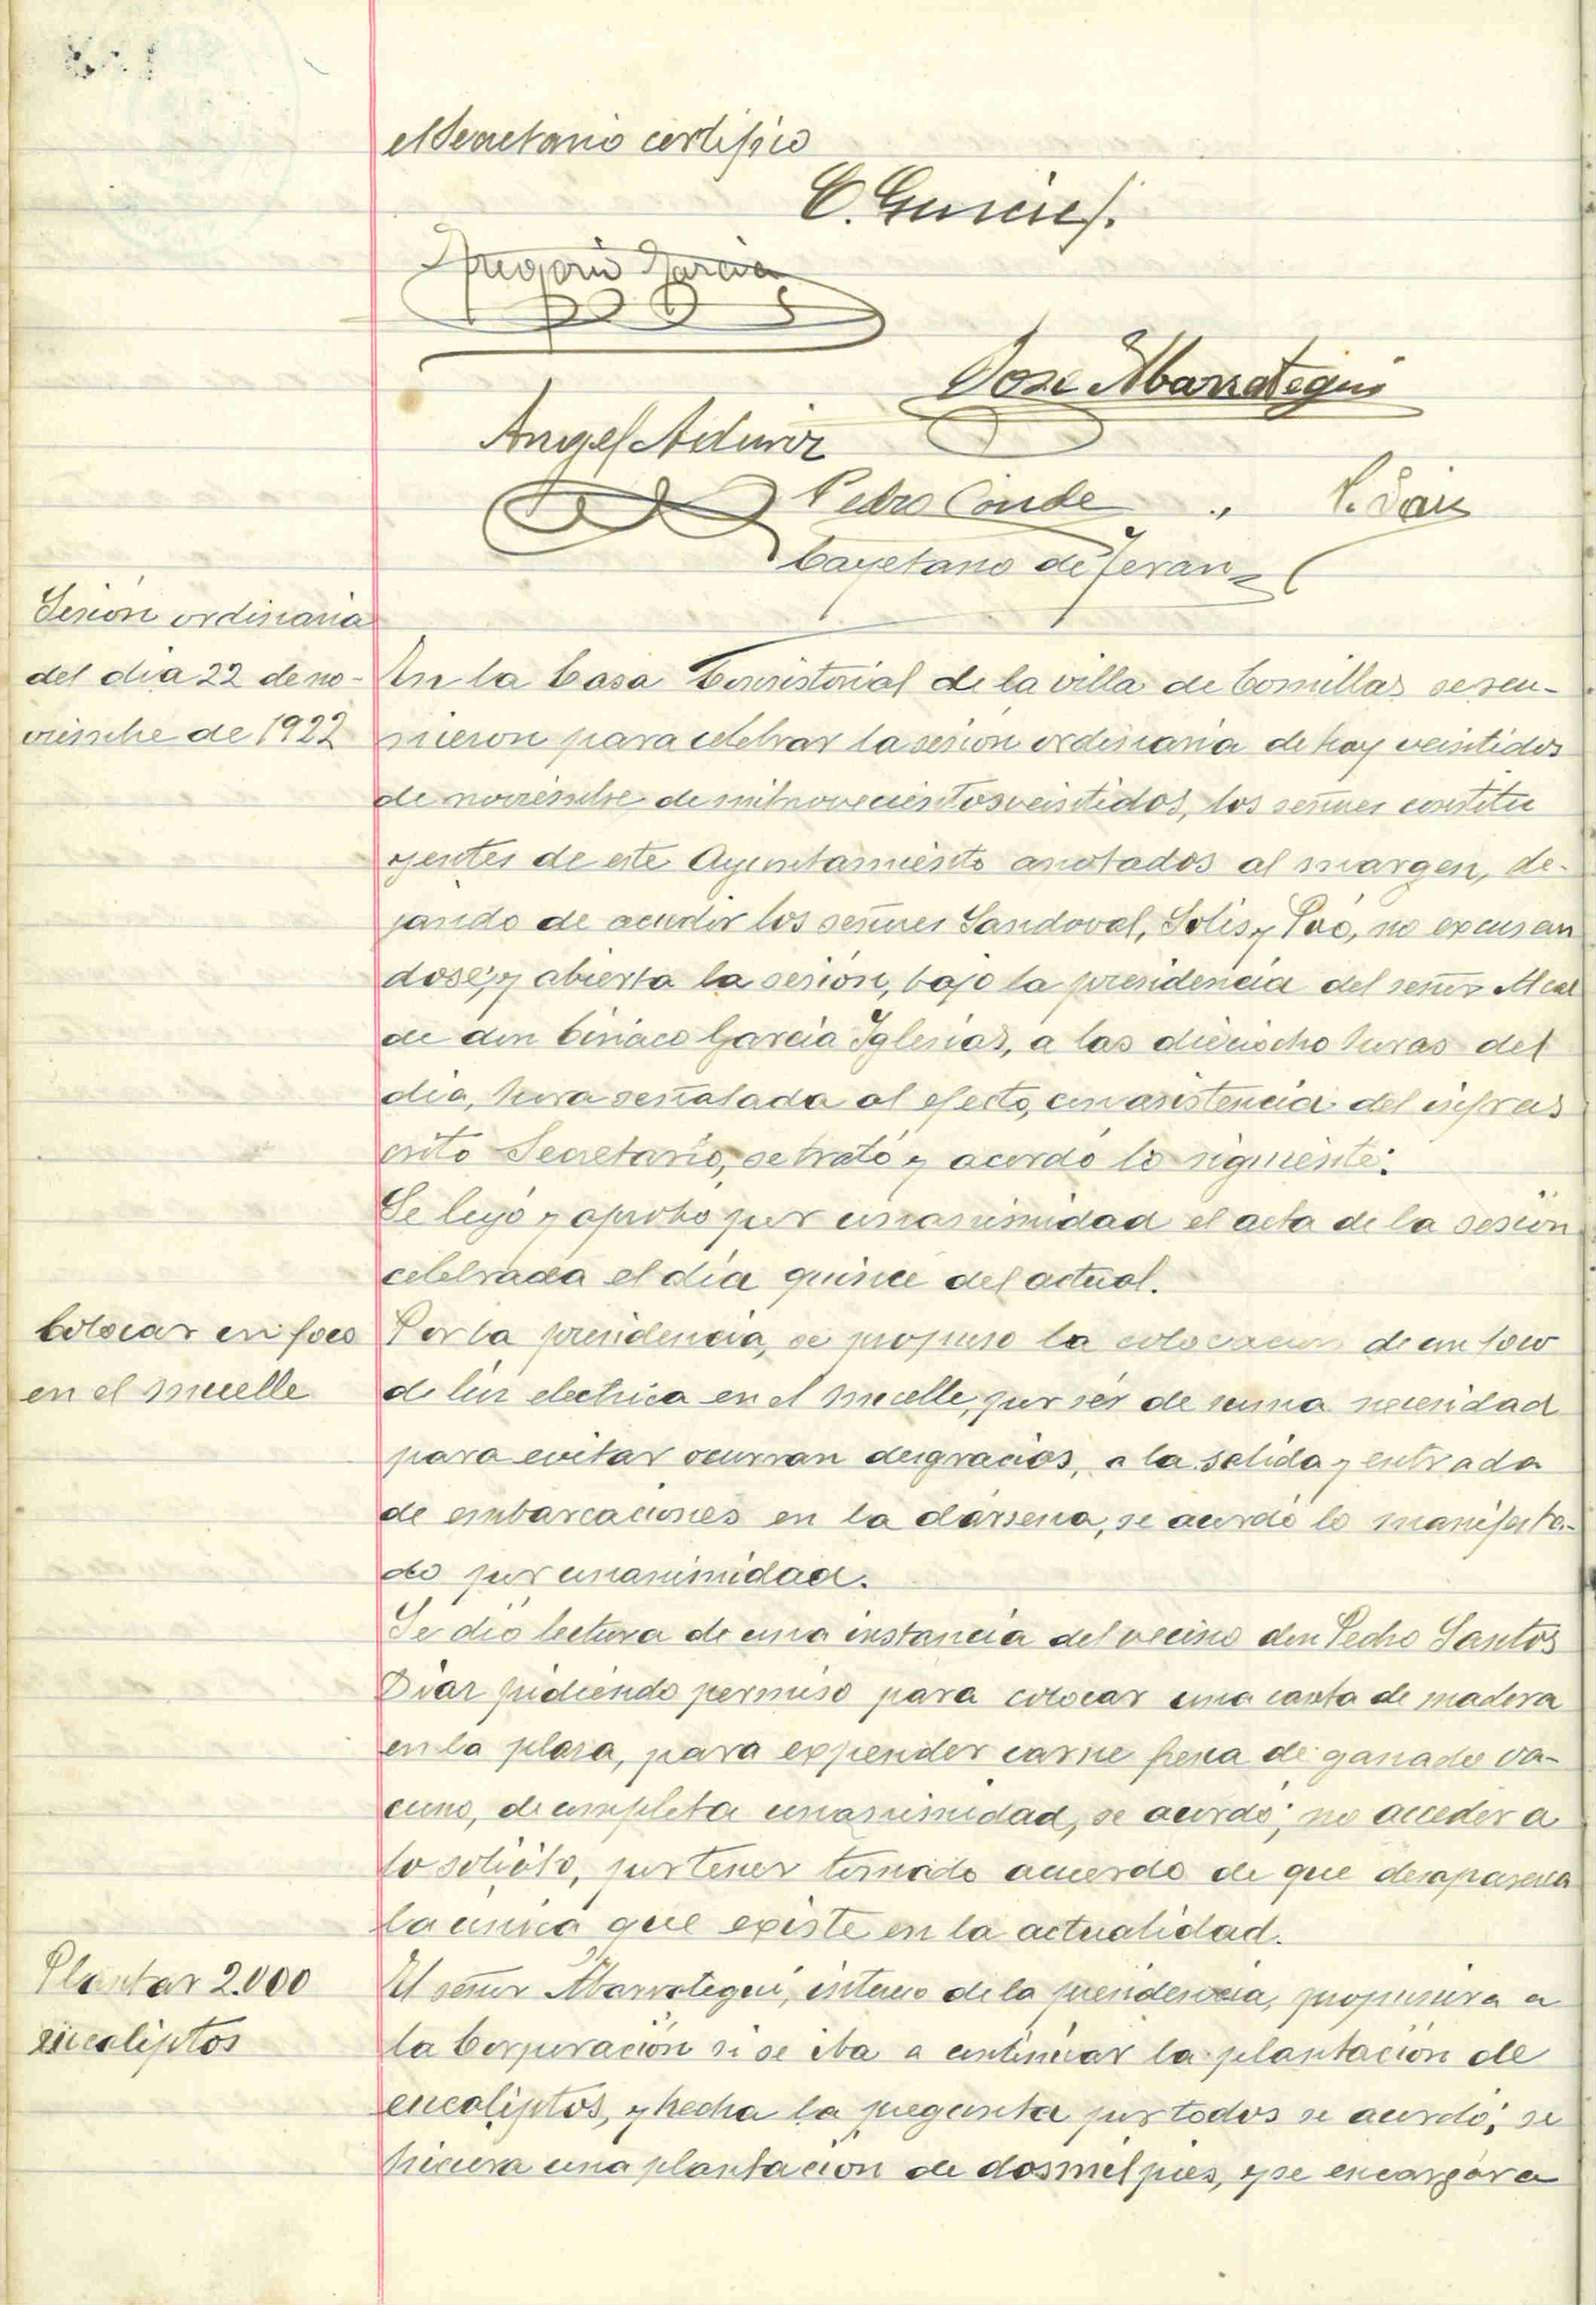 el Secretario certifico
Gregorio Garcia
Jose Abarrategui
Angel
Pedro Conde
Cayetano de Teran
Sesion ordinaria
del dia 22 de no-
viembre de 1922
En la Casa Consistorial de la villa de Comillas se reu-
nieron para celebrar la sesion ordinaria de hoy veintidos
de noviembre de mil novecientos veintidos, los señores constitu
yentes de este Ayuntamiento anotados al margen, de-
jando de acudir los señores Sandoval, Solis y no excusan
dose; y abierta la sesion, bajo la presidencia del señor Alcal
de don Ciriaco Garcia Iglesias, a las dieciocho horas del
dia, hora señalada al efecto, con asistencia del infras
crito Secretario, se trató y acordó lo siguiente:
Se leyó y aprobo por unanimidad el acta de la sesion
celebrada el dia quince del actual.
Colocar un foco
en el muelle
Por la presidencia, se propuso la colocacion de un foco
de luz electrica en el muelle, por ser de suma necesidad
para evitar ocurran desgracias, a la salida y entrada
de embarcaciones en la dársena, se acordó lo manifesta-
do por unanimidad.
Se dió lectura de una instancia del vecino don Pedro Santos
Diaz pidiendo permiso para colocar una caseta de madera
en la plaza, para expender carne fresca de ganado va-
cuno, de completa unanimidad, se acordó; no acceder a
lo solicito, por tener tomado acuerdo de que desaparezca
la unica que existe en la actualidad.
Plantar 2.000
eucaliptos
El señor Abarrategui, intereso de la presidencia, propusiera a
la Corporación si se iba a continuar la plantación de
eucaliptos, y hecha la pregunta por todos se acordó; se
hiciera una plantacion de dos mil pies, y se encargara